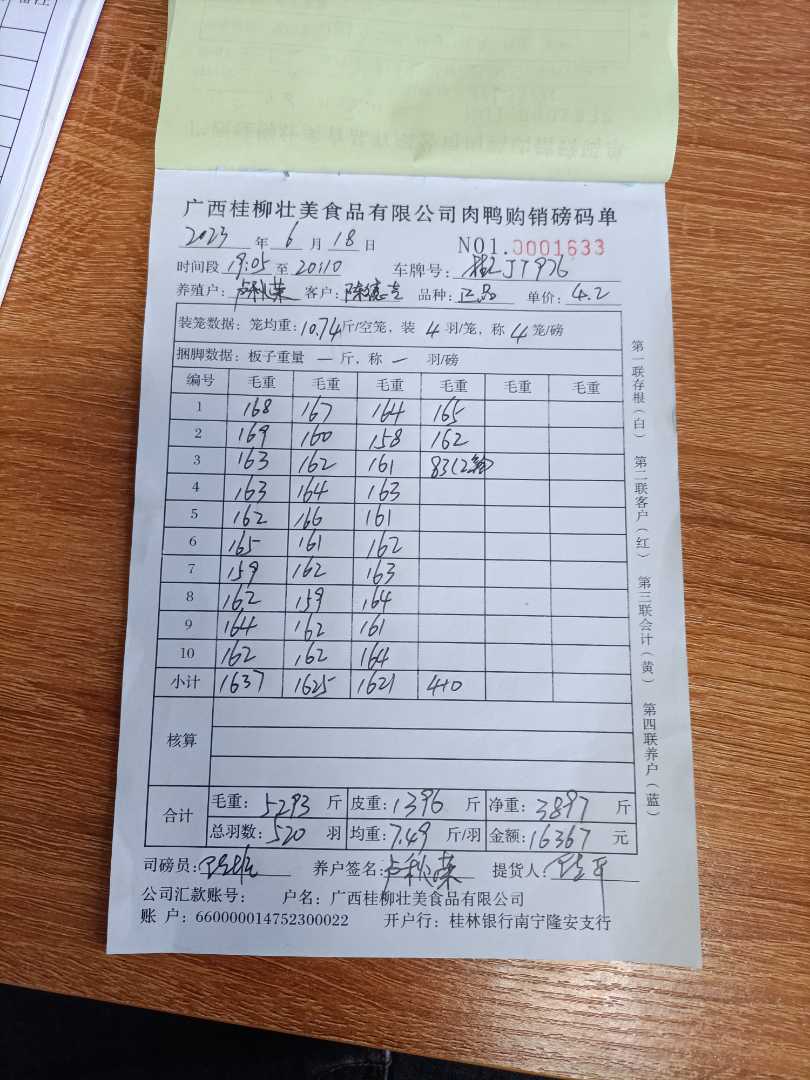 广西桂柳壮美食品有限公司肉鸭购销磅码单
2023 年 6 月 18 日 NO1.0001633
时间段 19:05 至 20:10 车牌号: JT976
养殖户: 卢秋荣 客户: 品种: 正品 单价: 4.2
装笼数据: 笼均重: 10.74 斤/空笼, 装 4 羽/笼, 称 4 笼/磅
捆脚数据: 板子重量 一 斤, 称 一 羽/磅
编号 毛重 毛重 毛重 毛重 毛重 毛重
1 168 167 164 165
2 169 160 158 162
3 163 162 161 83(2笼)
4 163 164 163
5 162 166 161
6 165 161 162
7 159 162 163
8 162 159 164
9 164 162 161
10 162 162 164
小计 1637 1625 1621 410
核算
合计 毛重: 5293 斤 皮重: 1396 斤 净重: 3897 斤
总羽数: 520 羽 均重: 7.49 斤/羽 金额: 16367 元
司磅员: 养户签名: 卢秋荣 提货人:
公司汇款账号: 户名: 广西桂柳壮美食品有限公司
账 户: 660000014752300022 开户行: 桂林银行南宁隆安支行
第一联存根(白) 第二联客户(红) 第三联会计(黄) 第四联养户(蓝)